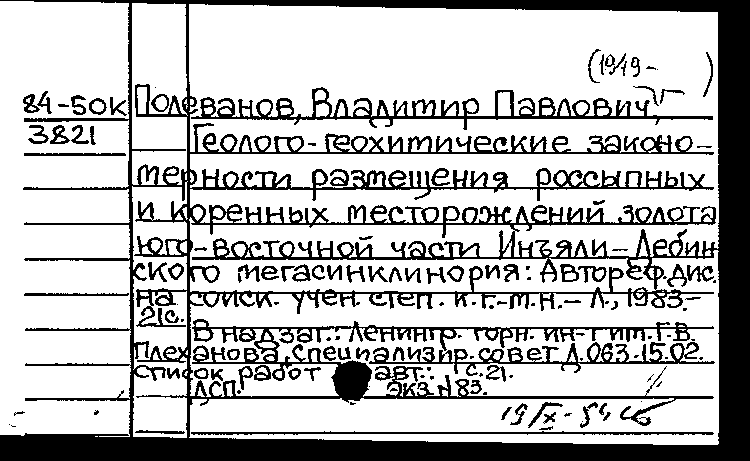 (1949- )
84-50к Полеванов, Владимир Павлович,
3821 Геолого-геохитические законо-
мерности размещения россыпных
и коренных месторождений золота
юго-восточной части Иньяли-Дебин
ского мегасинклинория: Автореф.дис.
на соиск. учен. степ. к.г.-м.н.- Л., 1983.-
21с.
В надзаг.: Ленингр. горн. ин-т им. Г.В.
Плеханова, Специализир. совет Д.063.15.02.
Список работ авт.: с.21.
ДСП. Экз.N83.
19/IX-84